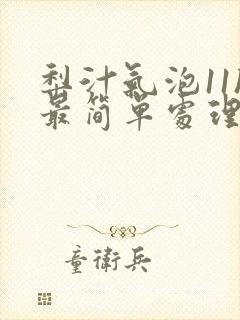 梨汁氣泡11
最簡單處理
童衛兵